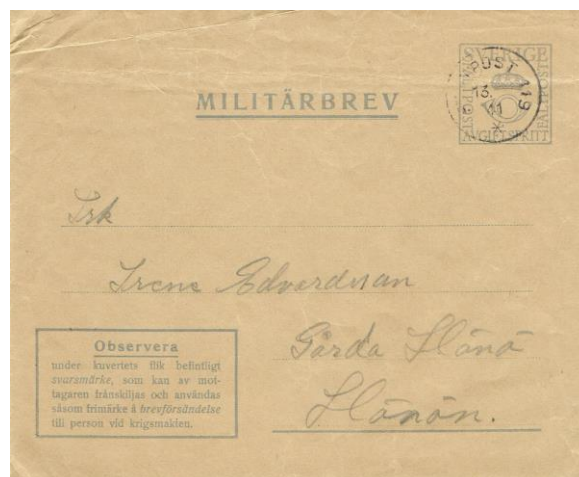 SVERIGE
MILITÄRBREV
FÄLTPOST
POST 119
13.
11
AVGIFTSFRITT
Frk
Irene Edvardsson
Gårda Hönö
Hönön.
Observera
under kuvertets flik befintligt
svarsmärke, som kan av mot-
tagaren frånskiljas och användas
såsom frimärke å brevförsändelse
till person vid krigsmakten.